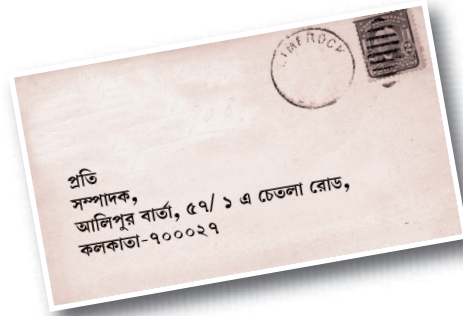 LIMEROCK
প্রতি
সম্পাদক,
আলিপুর বার্তা, ৫৭/ ১ এ চেতলা রোড,
কলকাতা-৭০০০২৭